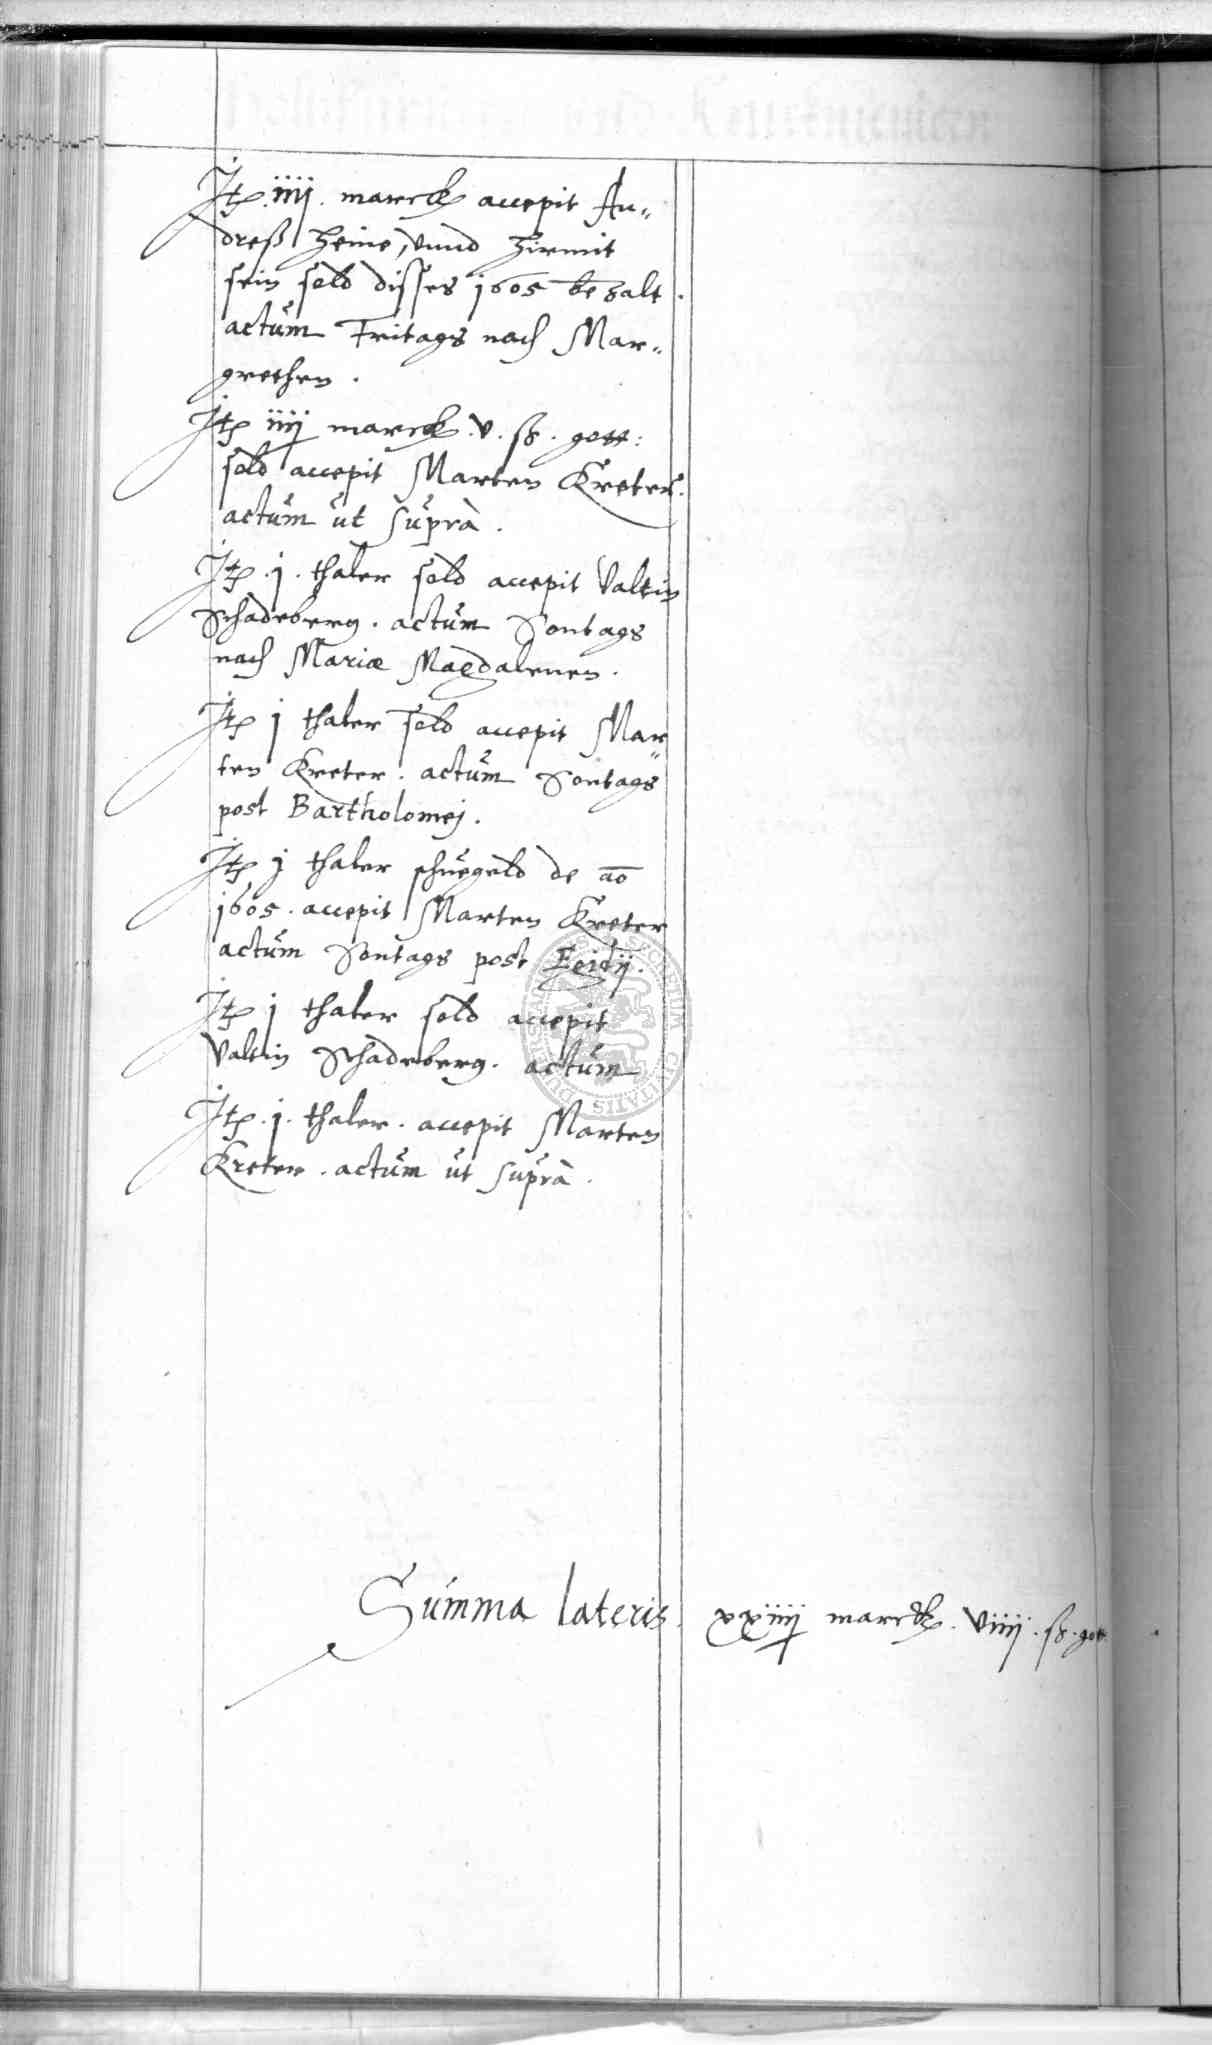 Itp. iiij. marck accepit An„
dreß Heine, vnnd hirmit
sein sold disses 1605 bezalt.
actum Fritags nach Mar„
grethen.
Itp iiij marck. v. ß. gott:
sold accepit Marten Kreter.
actum ut suprà.
Itp. j. thaler sold accepit Valtin
Schadeberg. actum Sontags
nach Mariæ Magdalenen.
Itp j thaler sold accepit Mar„
ten Kreter. actum Sontags
post Bartholomej.
Itp j thaler schuegeld de ao
1605. accepit Marten Kreter
actum Sontags post Egidij.
Itp j thaler sold accepit
Valtin Schadeberg. actum
Itp. j. thaler. accepit Marten
Kreter. actum ut suprà.
Summa lateris. xxiiij marck. viiij. ß. gott